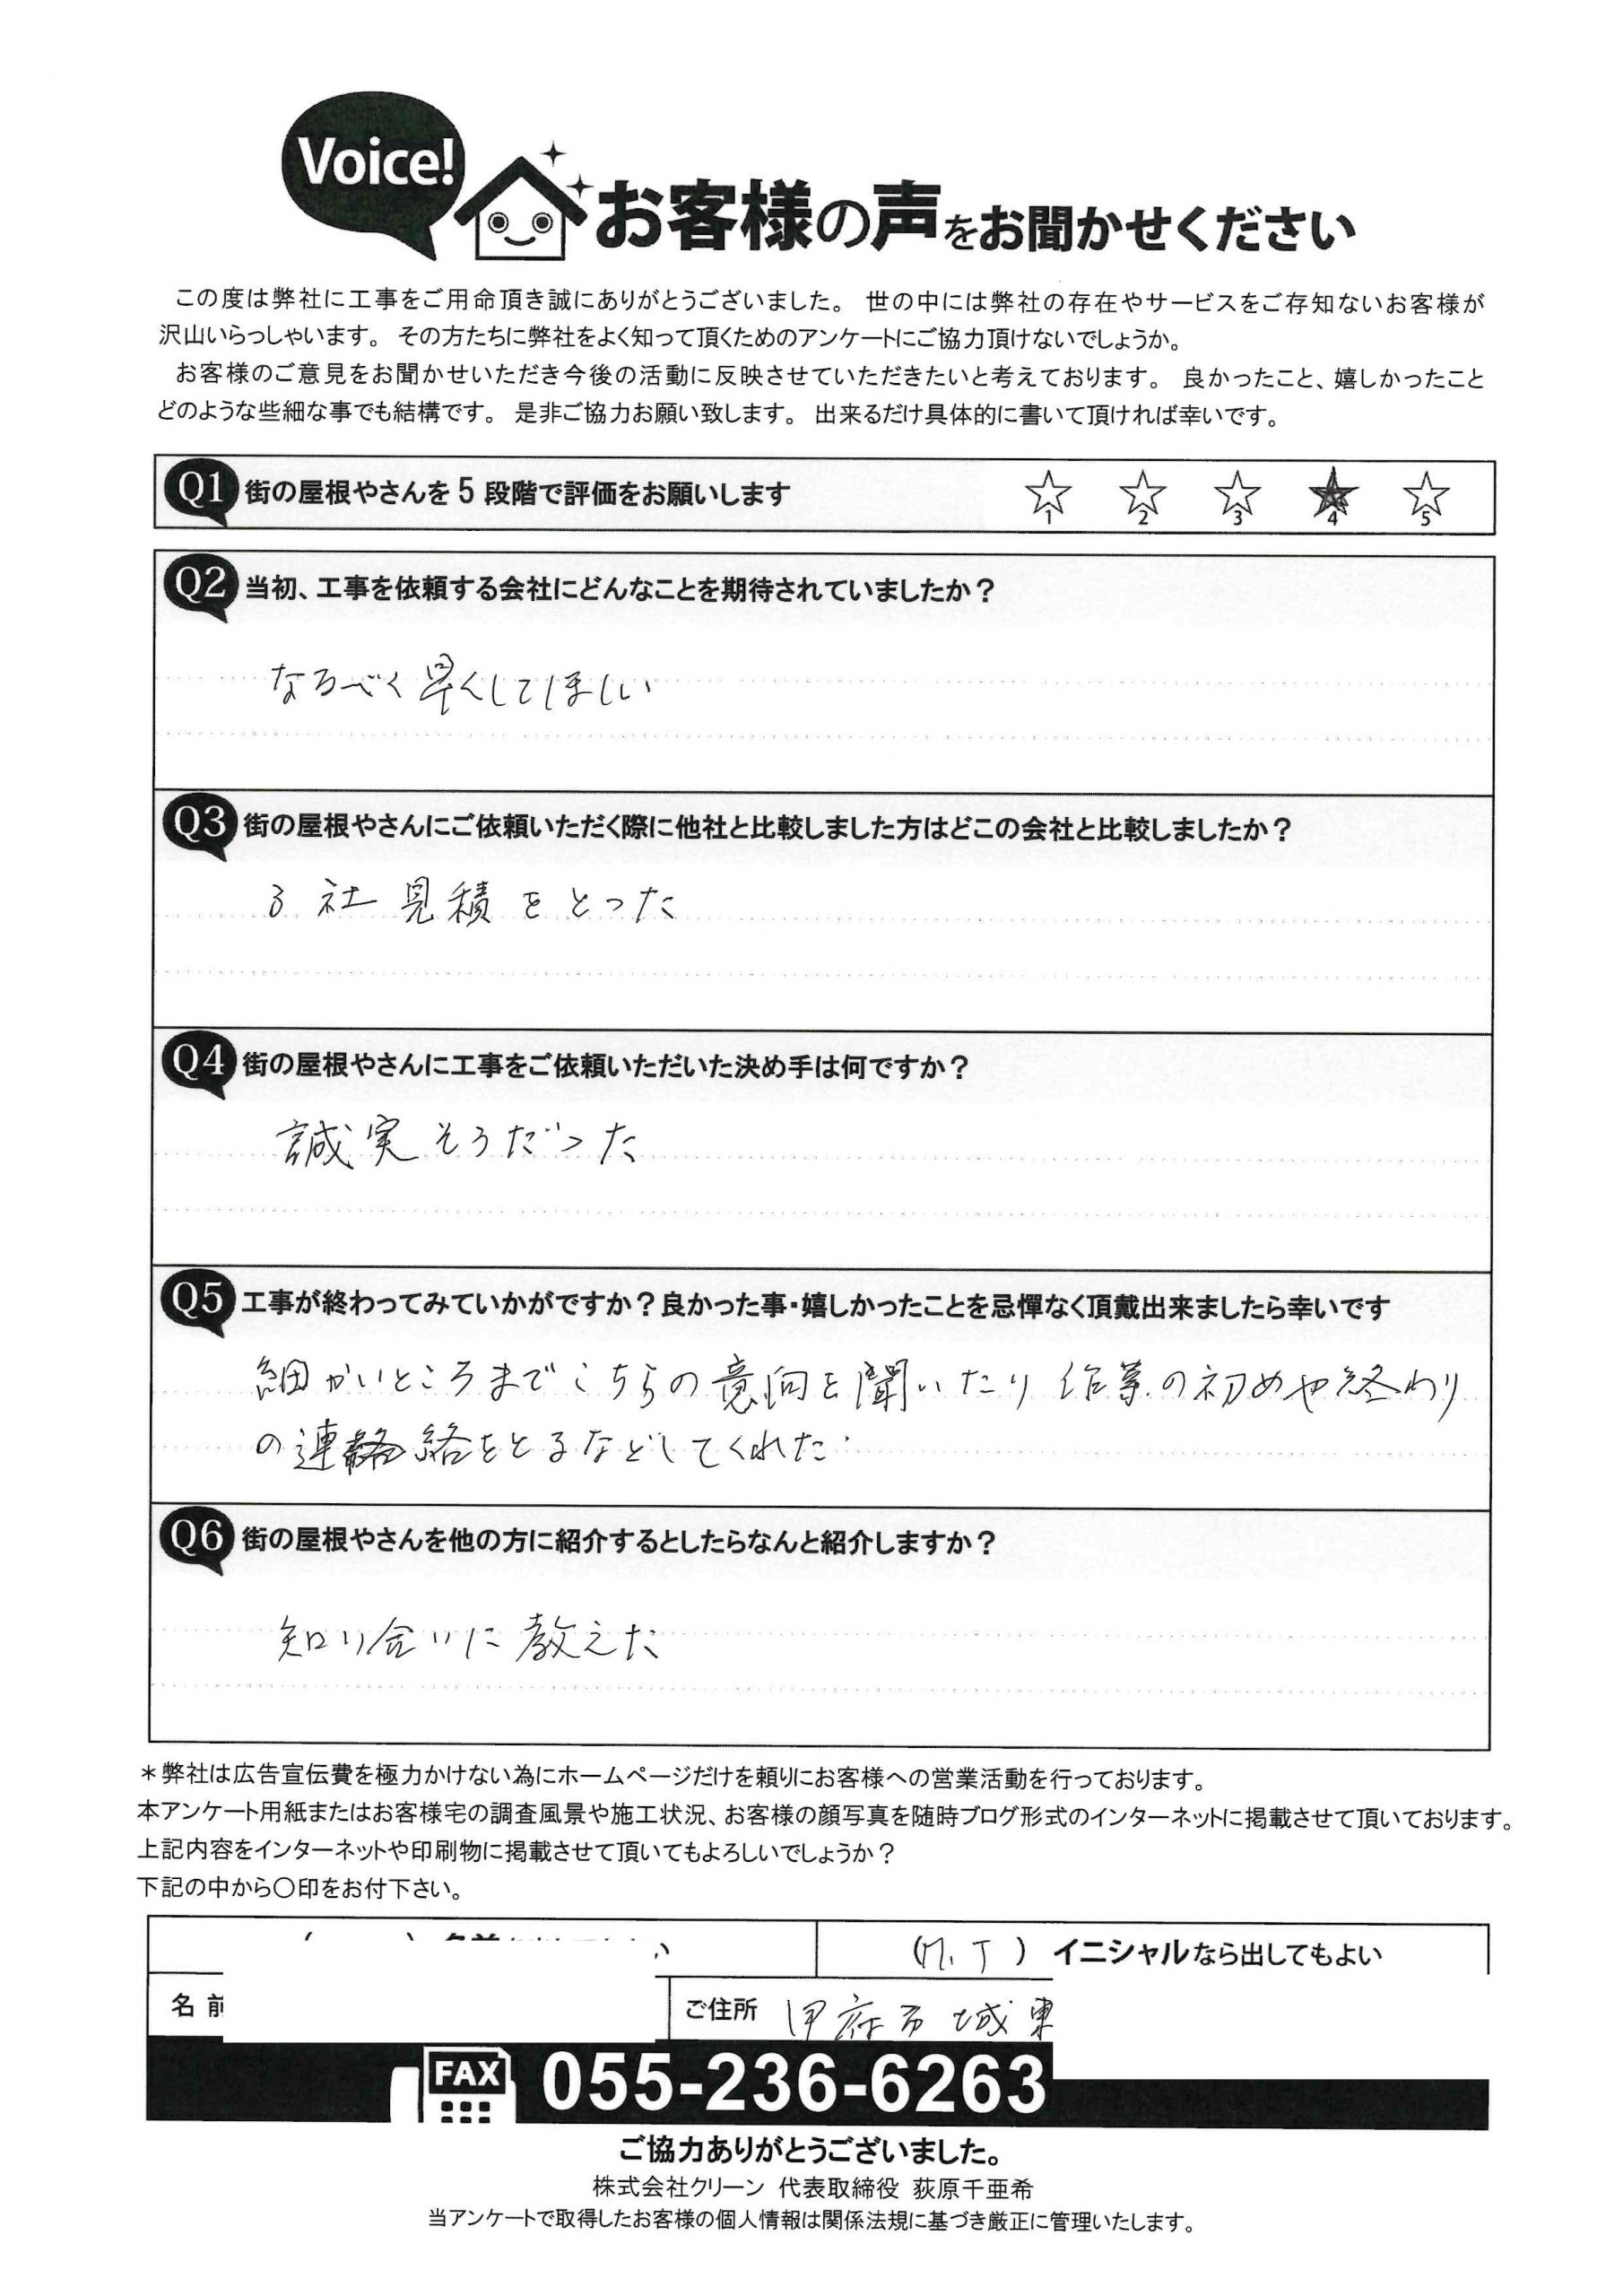 Voice!
お客様の声をお聞かせください
この度は弊社に工事をご用命頂き誠にありがとうございました。 世の中には弊社の存在やサービスをご存知ないお客様が
沢山いらっしゃいます。 その方たちに弊社をよく知って頂くためのアンケートにご協力頂けないでしょうか。
お客様のご意見をお聞かせいただき今後の活動に反映させていただきたいと考えております。 良かったこと、嬉しかったこと
どのような些細な事でも結構です。 是非ご協力お願い致します。 出来るだけ具体的に書いて頂ければ幸いです。
Q1 街の屋根やさんを5段階で評価をお願いします 1 2 3 4 5
Q2 当初、工事を依頼する会社にどんなことを期待されていましたか？
なるべく早くしてほしい
Q3 街の屋根やさんにご依頼いただく際に他社と比較しました方はどこの会社と比較しましたか？
3社見積をとった
Q4 街の屋根やさんに工事をご依頼いただいた決め手は何ですか？
誠実そうだった
Q5 工事が終わってみていかがですか？良かった事・嬉しかったことを忌憚なく頂戴出来ましたら幸いです
細かいところまでこちらの意向を聞いたり作業の初めや終わり
の連絡をとるなどしてくれた
Q6 街の屋根やさんを他の方に紹介するとしたらなんと紹介しますか？
知り合いに教えた
＊弊社は広告宣伝費を極力かけない為にホームページだけを頼りにお客様への営業活動を行っております。
本アンケート用紙またはお客様宅の調査風景や施工状況、お客様の顔写真を随時ブログ形式のインターネットに掲載させて頂いております。
上記内容をインターネットや印刷物に掲載させて頂いてもよろしいでしょうか？
下記の中から〇印をお付下さい。
(M.T) イニシャルなら出してもよい
名前 ご住所 甲府市城東
FAX 055-236-6263
ご協力ありがとうございました。
株式会社クリーン 代表取締役 荻原千亜希
当アンケートで取得したお客様の個人情報は関係法規に基づき厳正に管理いたします。